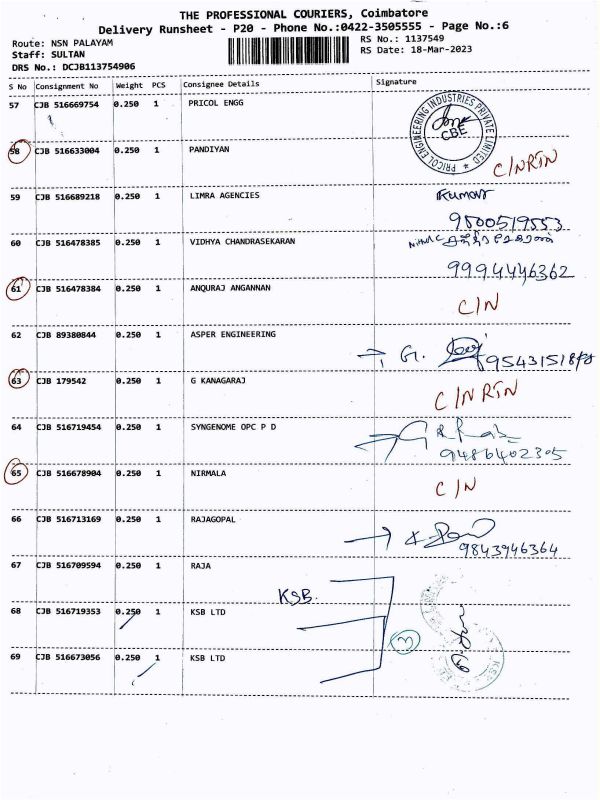 THE PROFESSIONAL COURIERS, Coimbatore
Delivery Runsheet - P20 - Phone No.:0422-3505555 - Page No.:6
Route: NSN PALAYAM
RS No.: 1137549
Staff: SULTAN
RS Date: 18-Mar-2023
DRS No.: DCJB113754906
S No Consignment No Weight PCS Consignee Details Signature
57 CJB 516669754 0.250 1 PRICOL ENGG
PRICOL ENGINEERING INDUSTRIES PRIVATE LIMITED
CBE
58 CJB 516633004 0.250 1 PANDIYAN C/NRTN
59 CJB 516689218 0.250 1 LIMRA AGENCIES Kumar
9500519553
60 CJB 516478385 0.250 1 VIDHYA CHANDRASEKARAN
9994446362
61 CJB 516478384 0.250 1 ANQURAJ ANGANNAN C/N
62 CJB 89380844 0.250 1 ASPER ENGINEERING G.
63 CJB 179542 0.250 1 G KANAGARAJ C/NRTN
64 CJB 516719454 0.250 1 SYNGENOME OPC P D
9486402305
65 CJB 516678904 0.250 1 NIRMALA C/N
66 CJB 516713169 0.250 1 RAJAGOPAL
9843946364
67 CJB 516709594 0.250 1 RAJA
KSB.
68 CJB 516719353 0.250 1 KSB LTD
3
69 CJB 516673056 0.250 1 KSB LTD